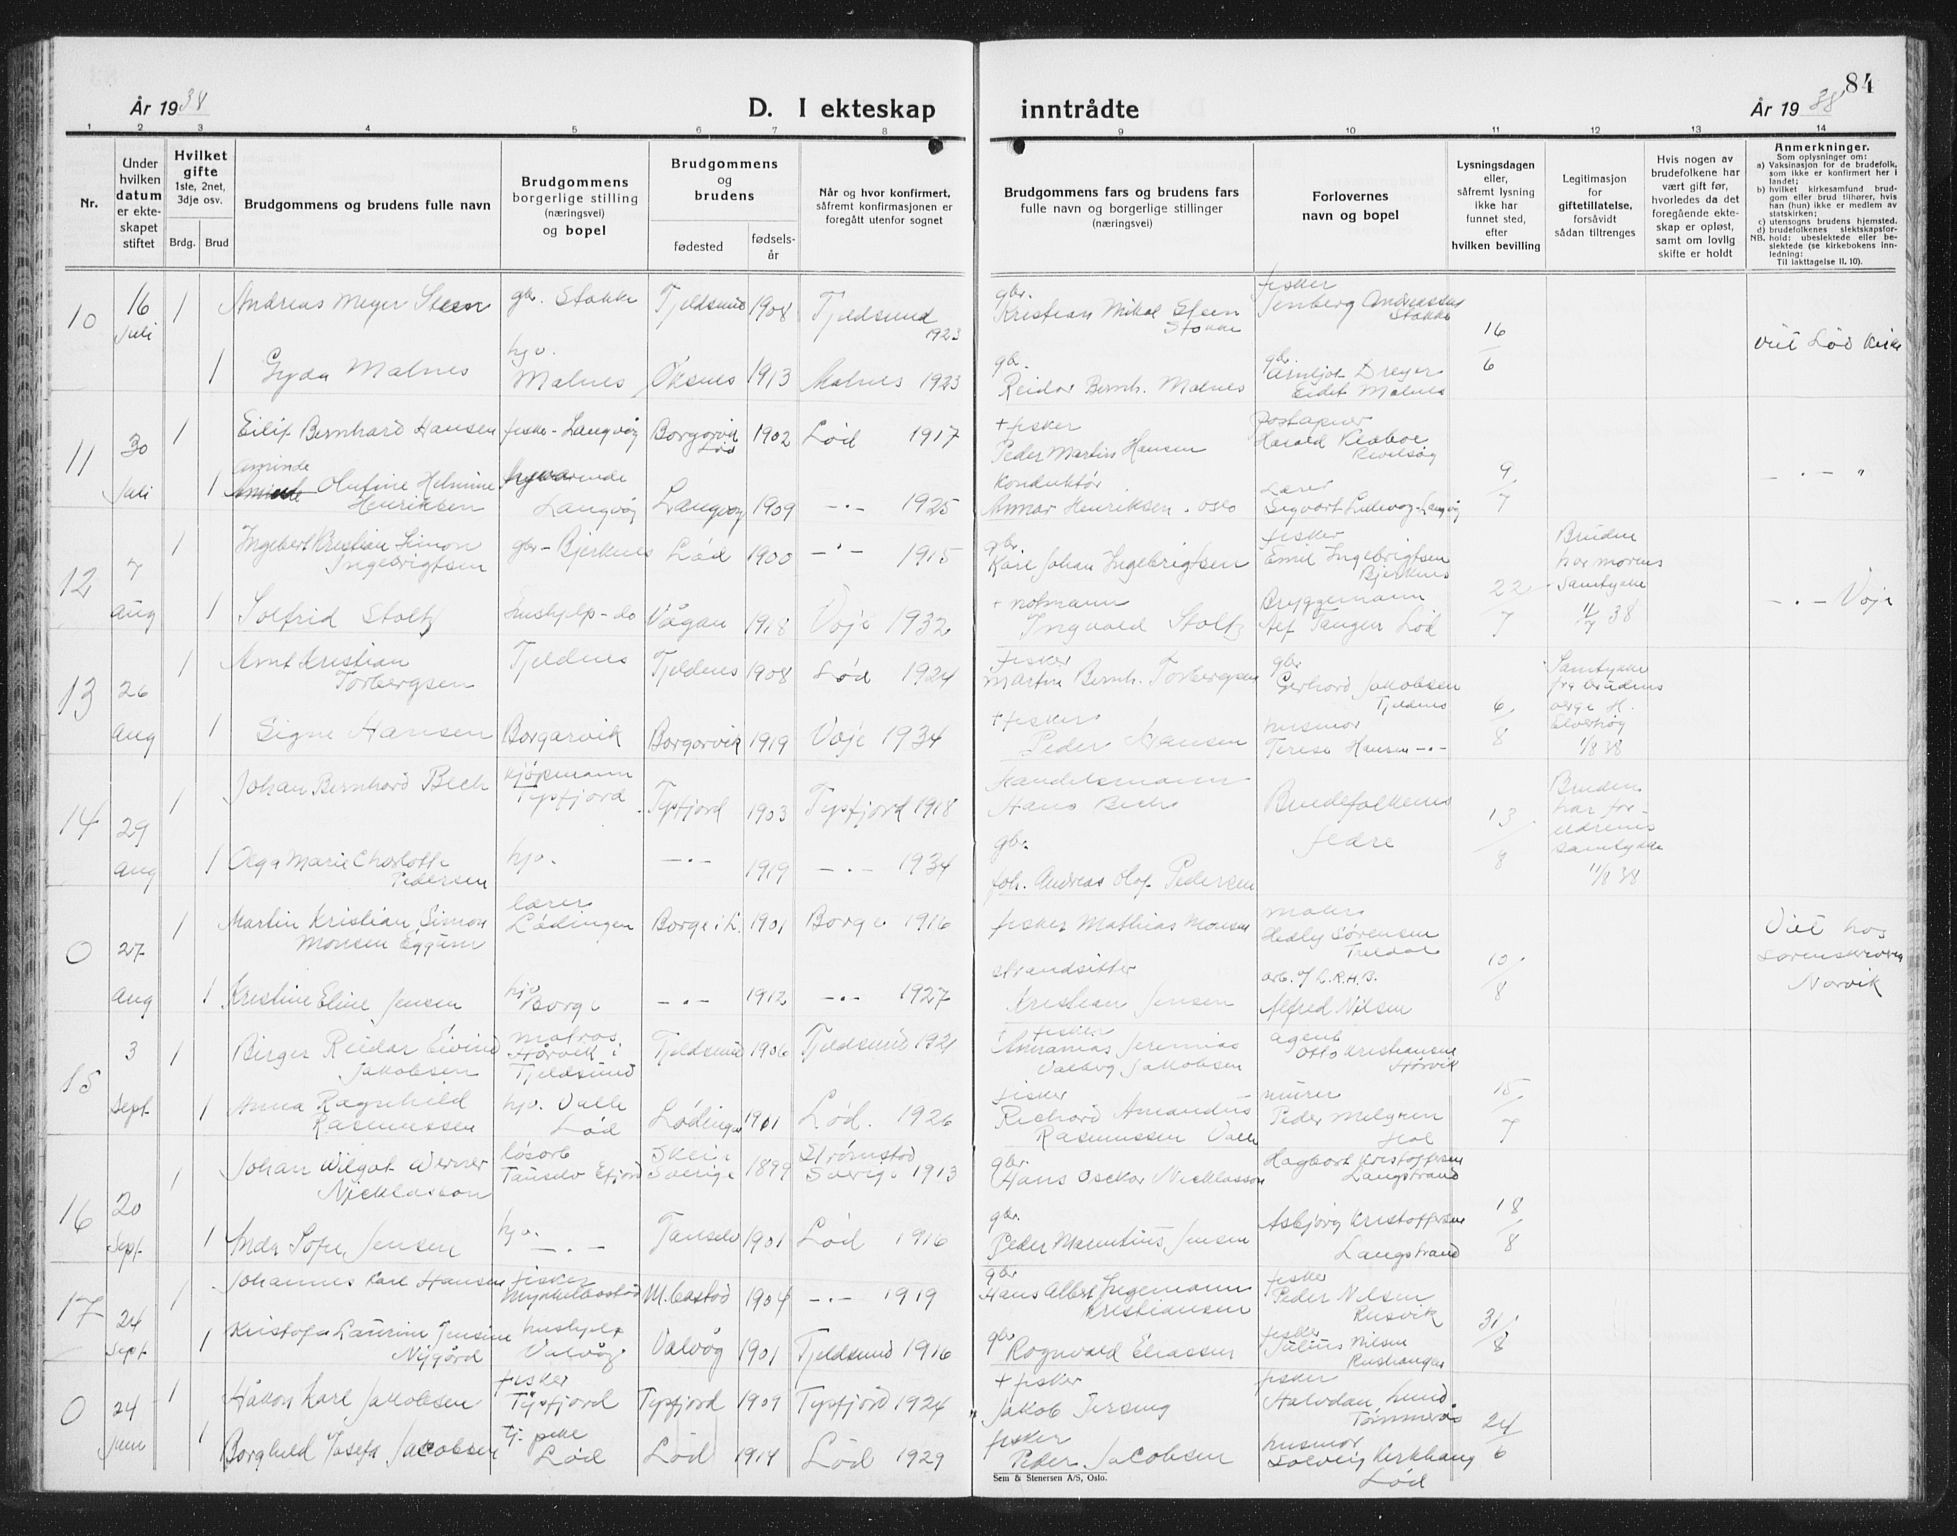 84
År 1938
D. I ekteskap inntrådte
År 1938
1 2 3 4 5 6 7 8 9 10 11 12 13 14
Nr.
Under hvilken datum er ekteskapet stiftet
Hvilket gifte 1ste, 2net, 3dje osv.
Brdg. Brud
Brudgommens og brudens fulle navn
Brudgommens borgerlige stilling (næringsvei) og bopel
Brudgommens og brudens
fødested
fødselsår
Når og hvor konfirmert, såfremt konfirmasjonen er foregått utenfor sognet
Brudgommens fars og brudens fars fulle navn og borgerlige stillinger (næringsvei)
Forlovernes navn og bopel
Lysningsdagen eller, såfremt lysning ikke har funnet sted, efter hvilken bevilling
Legitimasjon for giftetillatelse, forsåvidt sådan tiltrenges
Hvis nogen av brudefolkene har vært gift før, hvorledes da det foregående ekteskap er opløst, samt om lovlig skifte er holdt
Anmerkninger.
Som oplysninger om:
a) Vaksinasjon for de brudefolk, som ikke er konfirmert her i landet;
b) hvilket kirkesamfund brudgom eller brud tilhører, hvis han (hun) ikke er medlem av statskirken;
c) utensogns brudens hjemsted.
d) brudefolkenes slektskapsforhold: ubeslektede eller beslektede (se kirkebokens innledning:
NB. Til iakttagelse II, 10).
10 16 Juli 1 Andreas Meyer Steen gbr. Stokke Tjeldsund 1908 Tjeldsund 1923 gbr. Kristian Mikal Steen Stokke fisker Jenberg Andreassen Stokke 16/6 viet Lød Kirke
1 Gyda Malnes hjv. Malnes Øksnes 1913 Malnes 1923 gbr. Reidar Bernh. Malnes gbr. Arnljot Dreyer Eidet Malnes
11 30 Juli 1 Eilif Bernhard Hansen fisker - Langvåg Borgarvik Lød 1902 Lød 1917 + fisker Peder Martin Hansen Poståpner Harald Kiæboe 9/7 - . - "
1 Aminde Olufine Helmine Henriksen hjvarende Langvåg Langvåg 1909 - . - 1925 Konduktør Annar Henriksen. Oslo Lærer Sigvart Ludevåg - Langvåg
12 7 Aug 1 Ingebert Kristian Simon Ingebrigtsen gbr - Bjerknes Lød 1900 - . - 1915 gbr. Karl Johan Ingebrigtsen fisker Emil Ingebrigtsen Bjerknes 22/7 Bruden har morens samtykke 11/7 38 - . - Voje
1 Solfrid Stoltz hushjelp - do Vågan 1918 Voje 1932 + notmann Ingvald Stoltz Bryggemann Alf Tangen Lød
13 26 Aug 1 Arnt Kristian Torbergsen Tjeldnes Tjeldnes 1908 Lød 1924 fisker Martin Bernh. Torbergsen gbr Gerhard Jakobsen Tjeldnes 6/8 Samtykke fra brudens verge H. Elverhøg 1/8 38
1 Signe Hansen Borgarvik Borgarvik 1919 Voje 1934 + fisker Peder Hansen husmor Terese Hansen - . -
14 29 Aug 1 Johan Bernhard Bech Kjøpmann Tysfjord Tysfjord 1903 Tysfjord 1918 Handelsmann Hans Bech Brudefolkenes fedre 13/8 Bruden har foreldrenes samtykke 11/8 38
1 Olga Marie Charlotte Pedersen hjv. - . - 1919 - . - 1934 gbr. Joh. Andreas Olaf Pedersen
0 27 Aug 1 Martin Kristian Simon Monsen Eggum lærer Lødingen Borge i L. 1901 Borge 1916 fisker Mathias Monsen maler Hedly Sørensen 10/8 Viet hos sorenskriveren Narvik
1 Kristine Eline Jensen hjv Borge - . - 1912 - . - 1927 strandsitter Kristian Jensen arb. v/ L.R.H.B. Alfred Nilsen
15 3 Sept 1 Birger Reidar Eivind Jakobsen matros Hårvik i Tjeldsund Tjeldsund 1906 Tjeldsund 1921 fisker Ananias Jeremias Valberg Jakobsen agent Otto Kristiansen Hårvik 15/7
1 Anna Ragnhild Rasmussen hjv. Valle Lød Lødingen 1901 Lød. 1926 fisker Richard Amandus Rasmussen Valle murer Peder Melgren Hol
16 20 Sept 1 Johan Wilgot Werner Nicklasson løsarb Tanselv Efjord Skei i Sverige 1899 Strømstad Sverige 1913 gbr. Hans Osckar Nicklasson Hagbart Kristoffersen Langstrand 18/8
1 Anda Sofie Jensen hjv. - . - Tanselv 1901 Lød 1916 gbr. Peder Marentius Jensen Asbjørg Kristoffersen Langstrand
17 24 Sept 1 Johannes Karl Hansen fisker Myklebostad M.bostad 1904 - . - 1919 gbr Hans Albert Ingemann Kristiansen fisker Peder Nilsen Rusvik 31/8
1 Kristofa Laurine Jensine Nygård hushjelp Valvåg Valvåg 1901 Tjeldsund 1916 gbr Rognvald Eliassen fisker Julius Nilsen
0 24 Juni 1 Håkon Karl Jakobsen fisker Tysfjord Tysfjord 1909 Tysfjord 1924 + fisker Jakob Iversen fisker Halvdan Lund Tømmerås 24/6
1 Borghild Josefa Jacobsen Tj. pike Lød Lød 1914 Lød 1929 fisker Peder Jacobsen husmor Solveig Kirkhaug Lød
Sem & Stenersen A/S, Oslo.